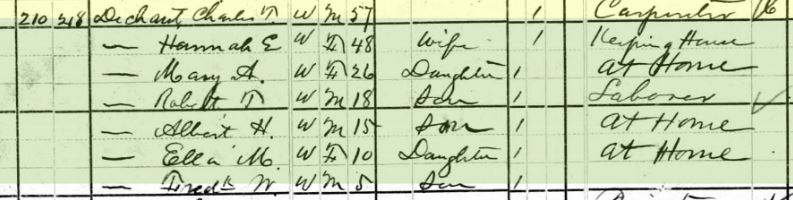 210 218 Dechant, Charles T. W M 57 1 Carpenter
— Hannah E W F 48 Wife 1 Keeping House
— Mary A. W F 26 Daughter 1 at Home
— Robert T W M 18 Son 1 Laborer ✓
— Albert H. W M 15 Son 1 at Home
— Ella M. W F 10 Daughter 1 at Home
— Fredk W. W M 5 Son 1